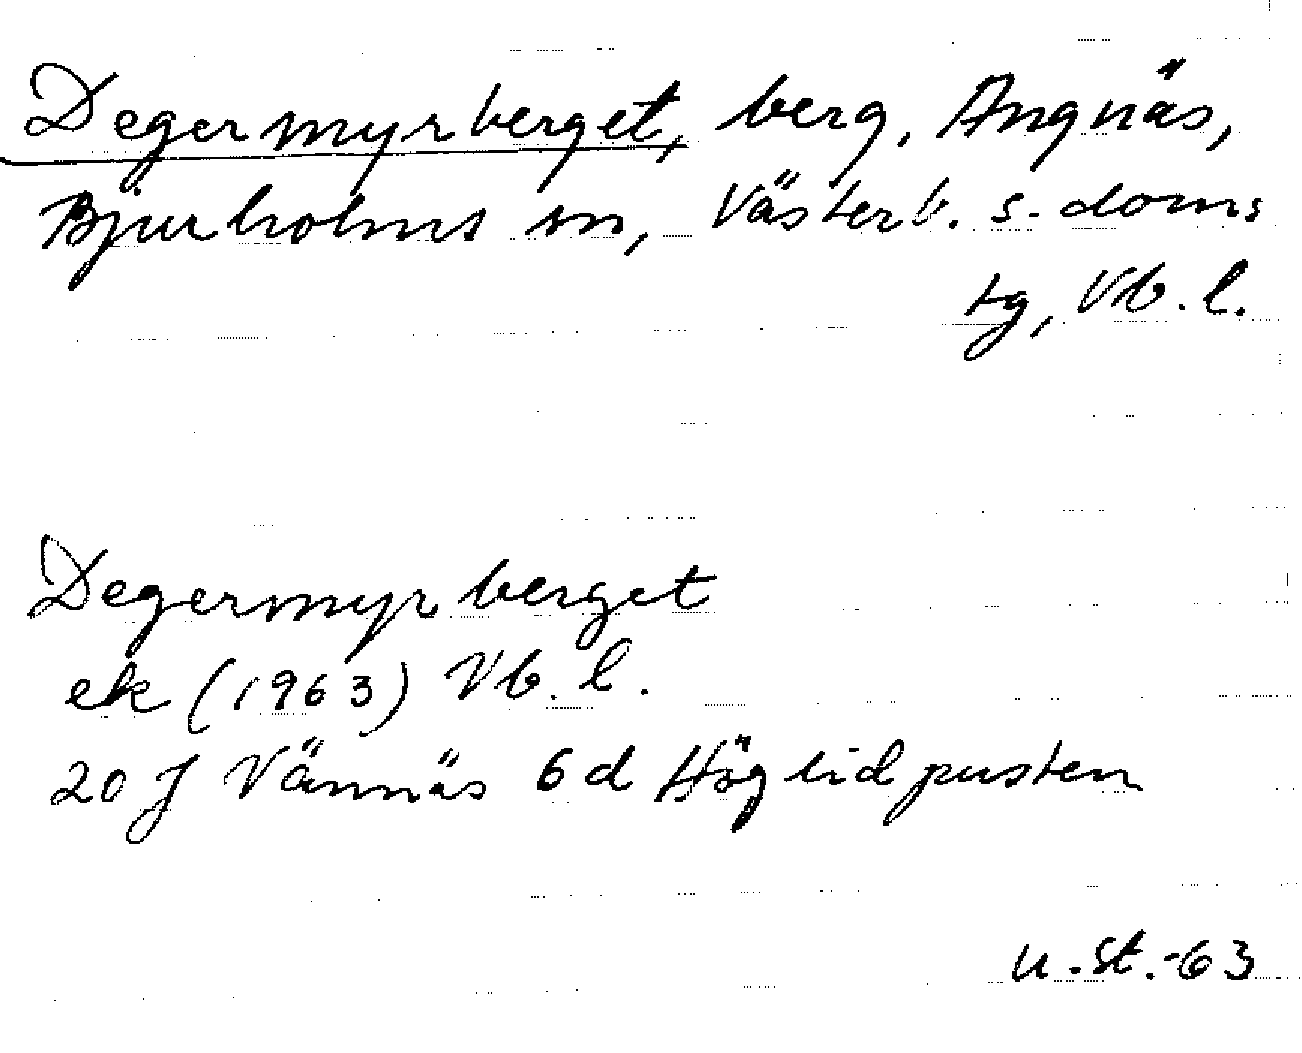 Degermyrberget, berg, Angnäs,
Bjurholms sn, Västerb. s. doms
tg, Vb. l.
Degermyrberget
ek (1963) Vb. l.
20 J Vännäs 6 d Höglidpusten
u. st. -63